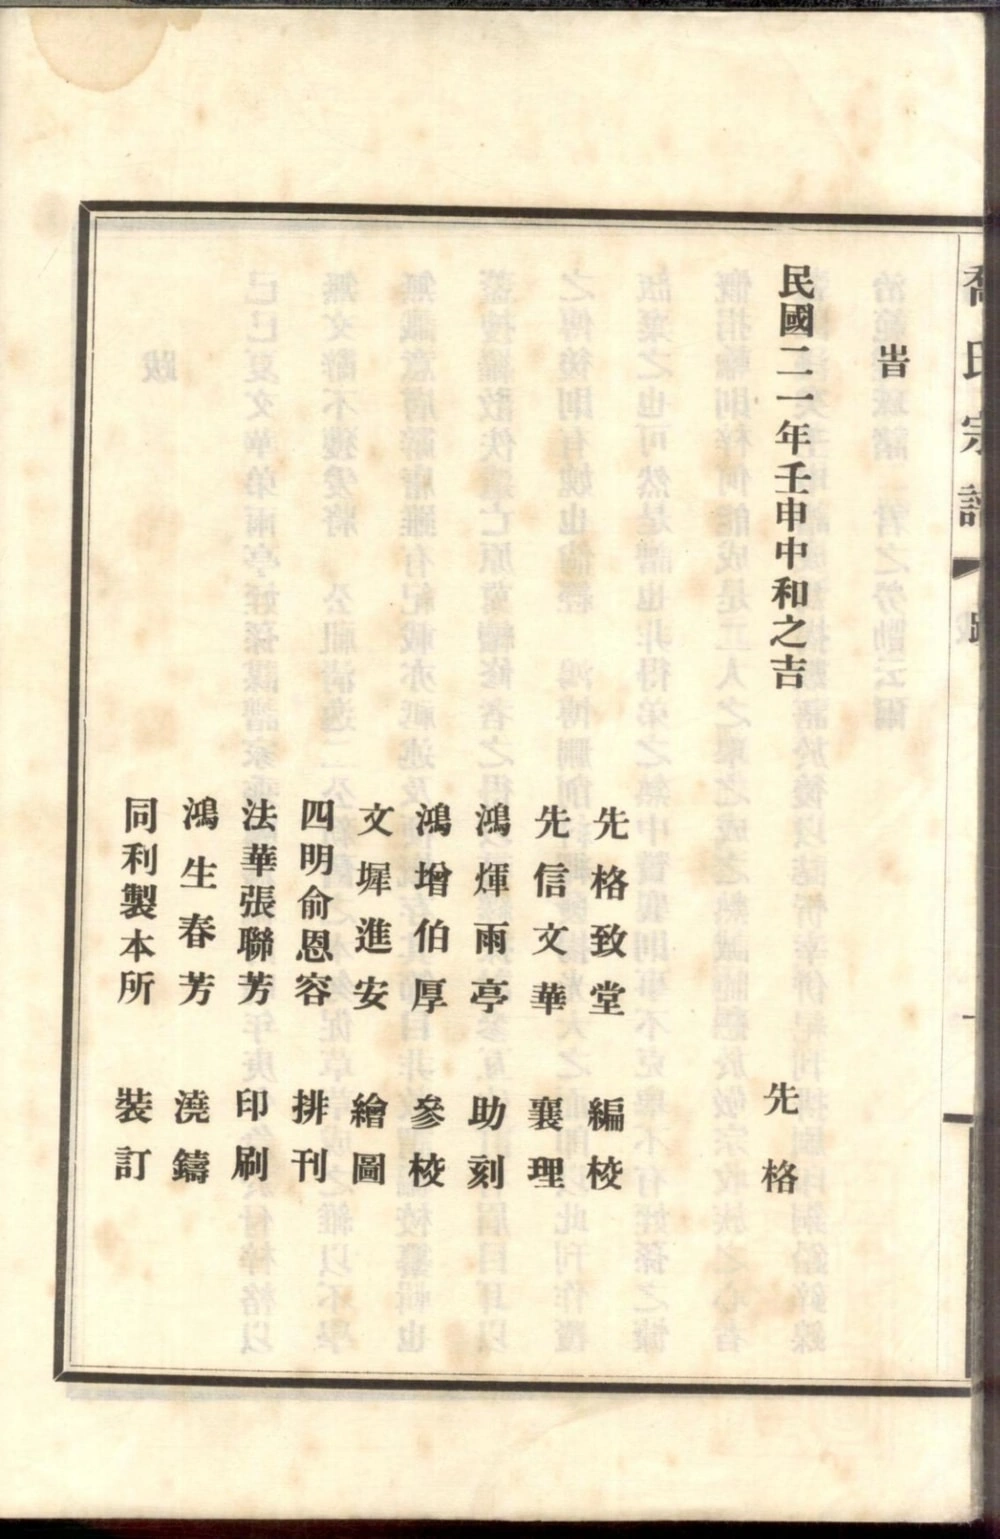 喬氏宗譜 跋 一
旹
民國二一年壬申中和之吉
先格
先格致堂 編校
先信文華 襄理
鴻煇雨亭 助刻
鴻增伯厚 參校
文墀進安 繪圖
四明俞恩容 排刊
法華張聯芳 印刷
鴻生春芳 澆鑄
同利製本所 裝訂